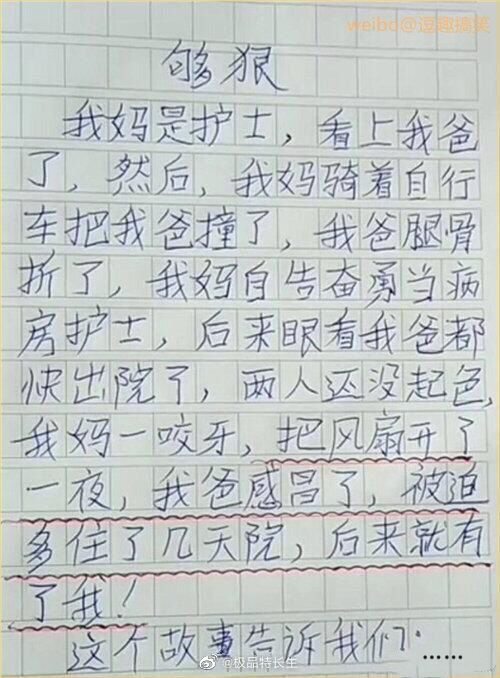 weibo@逗趣搞笑
够狠
我妈是护士，看上我爸
了，然后，我妈骑着自行
车把我爸撞了，我爸腿骨
折了，我妈自告奋勇当病
房护士，后来眼看我爸都
快出院了，两人还没起色，
我妈一咬牙，把风扇开了
一夜，我爸感昌了，被迫
多住了几天院，后来就有
了我！
这个故事告诉我们：……
@极品特长生